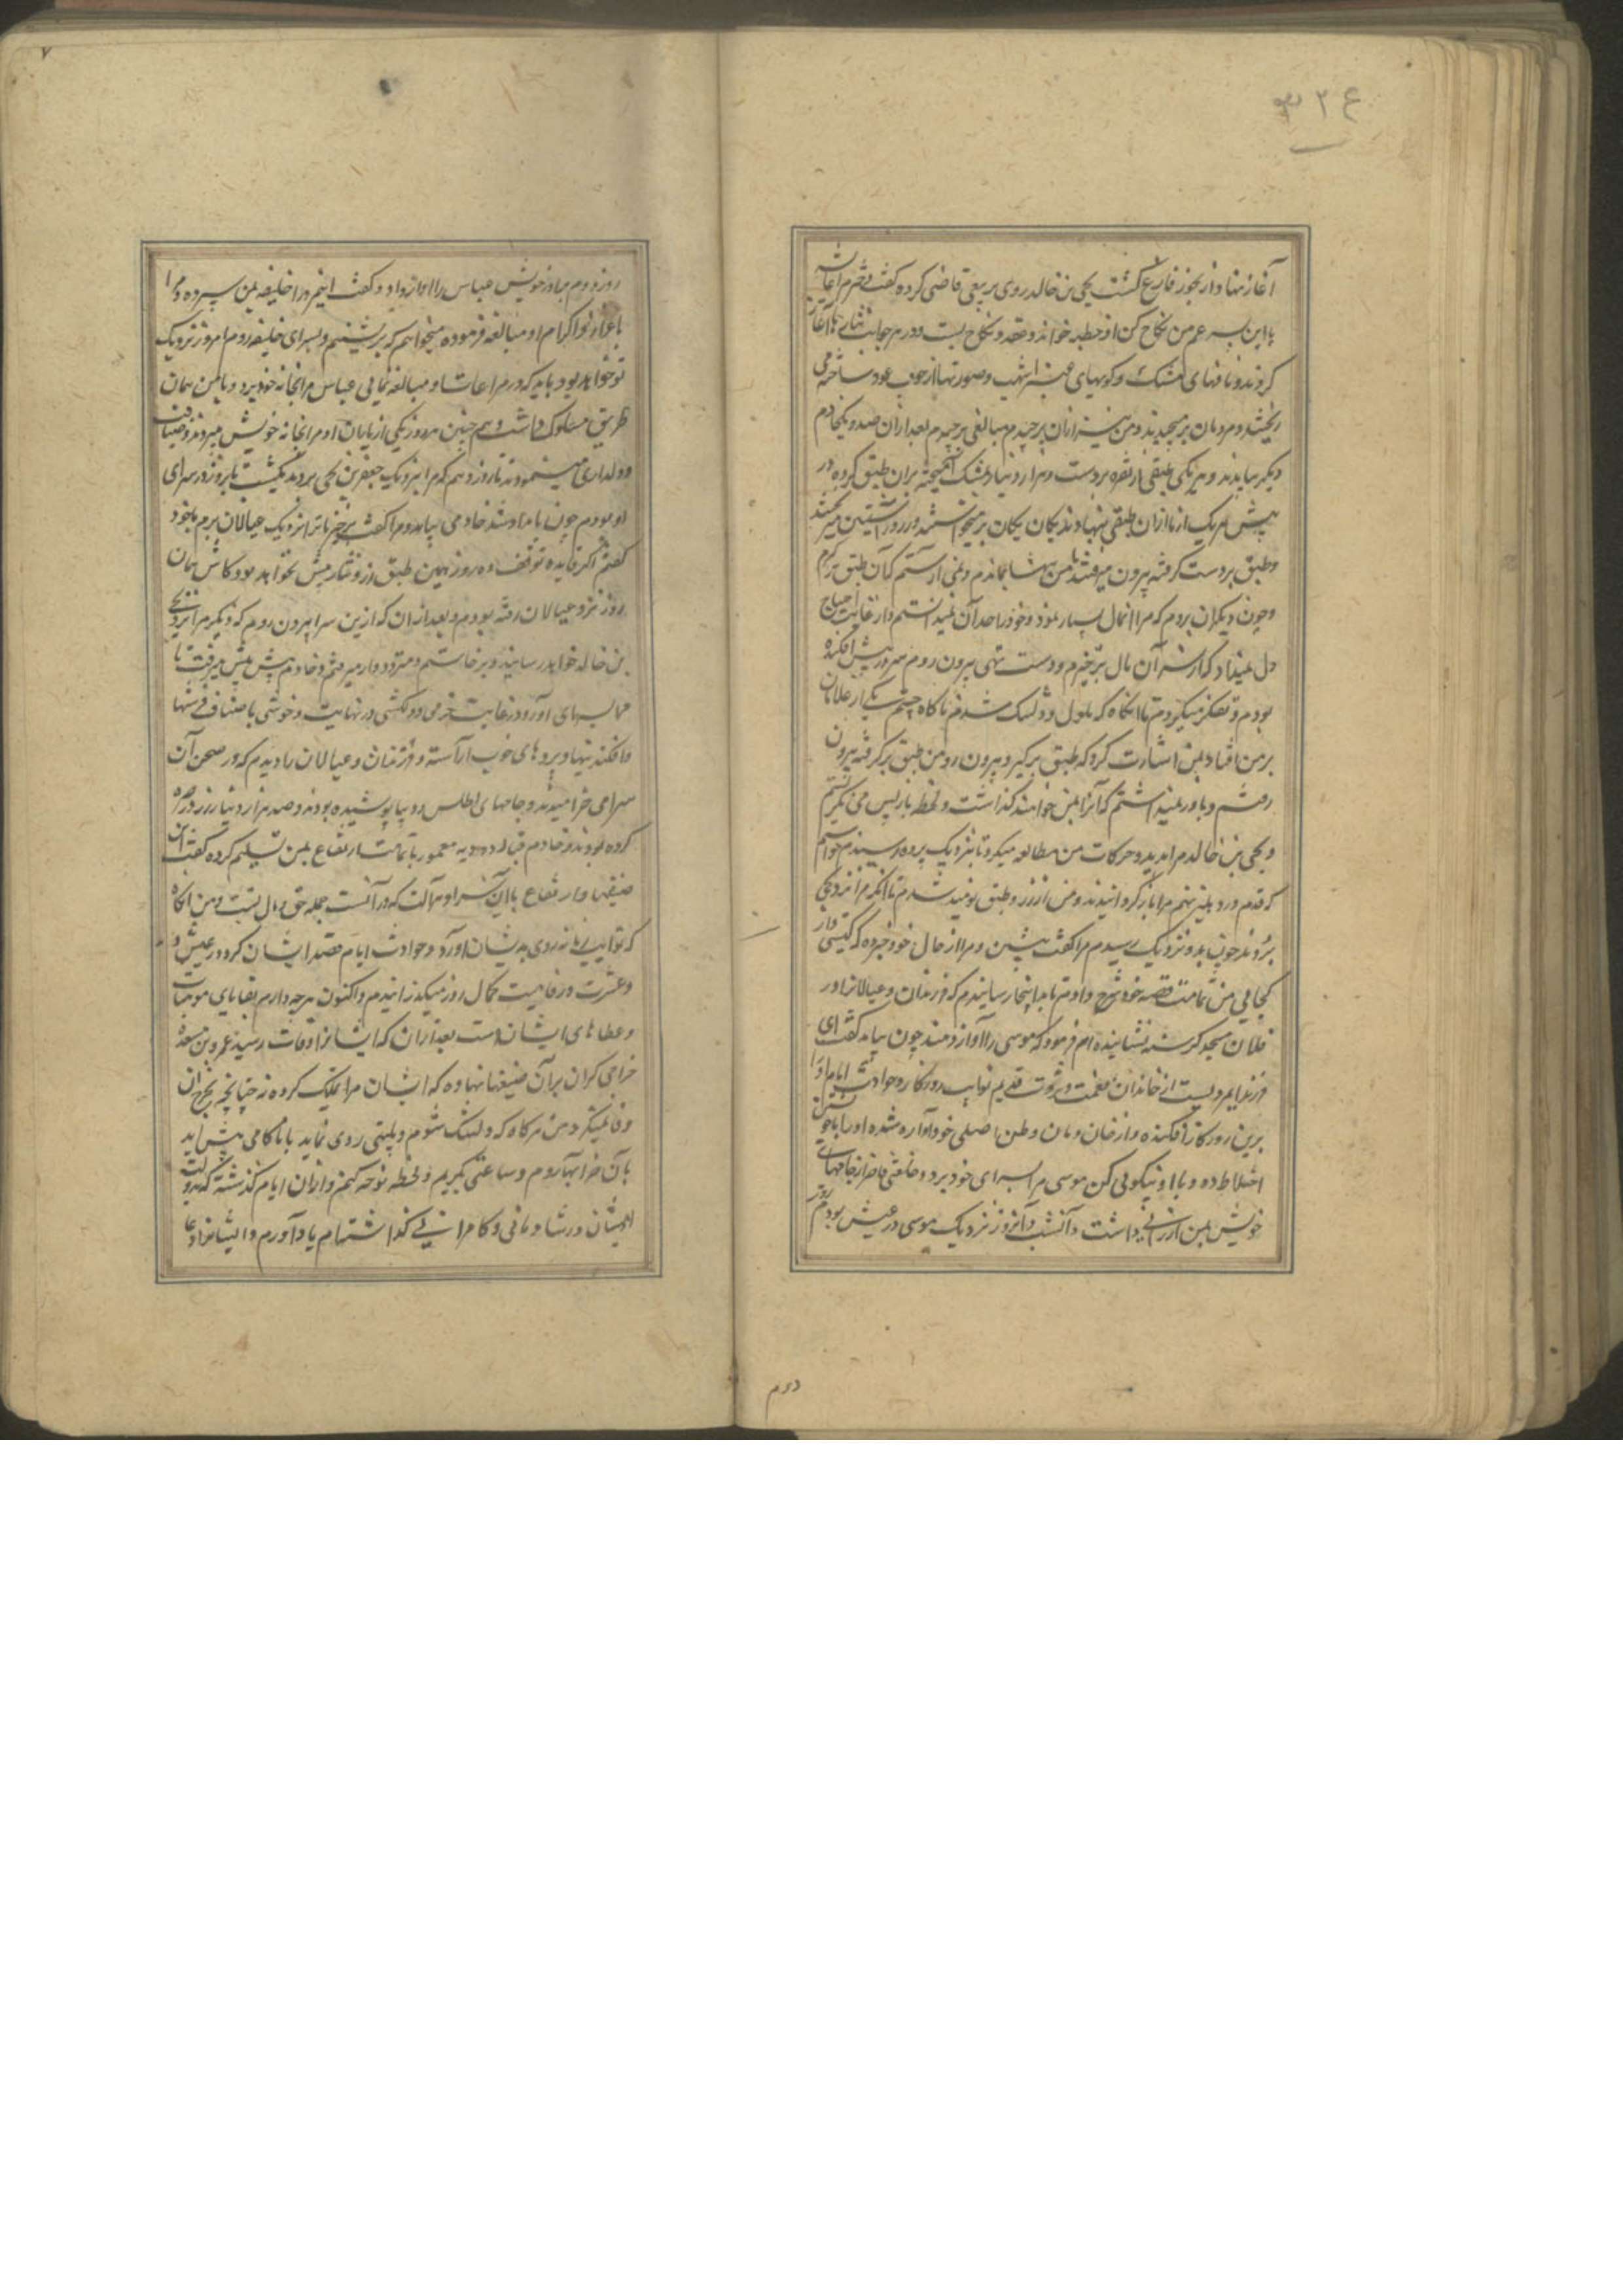 ۳۲۴
آغاز نهاد از بخور فارغ گشت یحیی بن خالد روی بریعی قاضی کرده گفت دخترم را عایشه
با این پسر عم من نکاح کن او خطبه خواند و عقد و نکاح بست و در هر جانب نثارها آغاز
کردند و نافهای مشک و کویهای عنبر اشهب و صورتها از جوف عود ساخته می
ریختند و مردمان بر میچیدند و من نیز از آن برچیدم مبالغی برچیدم بعد از آن صد و یکخادم
دیگر بیامدند و هر یکی طبقی از نقره بر دست و هزار دینار بمشک آمیخته بران طبق کرده در
پیش هر یک از ما ازان طبقی بنهادند یکان یکان بر میخواستند و زر در آستین میریختند
و طبق بر دست گرفته بیرون میرفتند من تنها بماندم و نمی یارستم که آن طبق برگیرم
و چون دیگران بروم که مرا آنمال بسیار نمود و خود را حد آن نمیدانستم و از غایت احتیاج
دل نمیداد که از سر آن مال برخیزم و دست تهی بیرون روم سر در پیش افکنده
بودم و تفکر میکردم تا آنگاه که ملول و دلتنگ شدم ناگاه چشم یکی از غلامان
بر من افتاد بمن اشارت کرد که طبق برگیر و بیرون رو من طبق برگرفته بیرون
رفتم و باور نمیداشتم که آنرا بمن خواهند گذاشت و لحظه باز پس می نگریستم
و یحیی بن خالد مرا بدید و حرکات من مطالعه میکرد تا بنزدیک پرده رسیدم خواستم
که قدم در دهلیز نهم مرا باز گردانیدند و من از زر و طبق نومید شدم تا آنکه مرا نزد یحیی
بردند چون بدو نزدیک رسیدم مرا گفت بنشین و مرا از حال خود خبر ده که کیستی و از
کجایی من تمامت قصه خود شرح دادم تا بدانجا رسانیدم که فرزندان و عیالانرا در
فلان مسجد گرسنه نشانیده ام فرمود که موسی را آواز دهند چون بیامد گفت ای
فرزند این مردیست از خاندان نعمت و ثروت قدیم نوایب روزگار و حوادث ایام او را
برین روزگار افکنده و از خان و مان و وطن اصلی خود آواره شده او را با خویشتن
اختلاط ده و با او نیکویی کن موسی مرا بسرای خود برد و خلعتی فاخر از جامهای
خویش بمن ارزانی داشت و آنشب و آنروز نزدیک موسی در عیش بودم روز
دوم
۷
روز دوم برادر خویش عباس را آواز داد و گفت اینمرد را خلیفه بمن سپرده و مرا
باعزاز و اکرام او مبالغه فرموده میخواهم که برنشینم و بسرای خلیفه روم امروز نزدیک
تو خواهد بود باید که در مراعات او مبالغه نمایی عباس مرا بخانه خود برد و با من همان
طریق مسلوک داشت و هم چنین هر روز یکی از یاران او مرا بخانه خویش میبردند و ضیافت
و دلداری مینمودند تا روز دهم که مرا بنزدیک جعفر بن یحیی بردند یکشب تا بروز در سرای
او بودم چون بامداد شد خادمی بیامد و مرا گفت برخیز تا ترا نزدیک عیالان برم با خود
گفتم اگر فایده توقف ده روزه همین طبق زر و نثار بیش نخواهد بود کاش همان
روز نزد عیالان رفته بودم و بعد از آن که ازین سرا بیرون روم که دیگر مرا بیحیی
بن خالد خواهد رسانید و برخاستم و متردد وار میرفتم و خادم پیش پیش میرفت تا
مرا بسرای آورد در غایت خرمی و دلکشی در نهایت و خوشی باصناف فرشها
افکنده و پردهای خوب آراسته و فرزندان و عیالان را دیدم که در صحن آن
سرا می خرامیدند و جامهای اطلس و دیبا پوشیده بودند و صد هزار دینار زر در صره
کرده بودند و خادم قباله دو دیه معمور با تمامت ارتفاع بمن تسلیم کرده گفت این
ضیعها و ارتفاع با این سرا و هر آلت که در آنست جمله حق و مال تست و من آنگاه
که نوایب زمانه روی بدیشان آورد و حوادث ایام قصد ایشان کرد در عیش و
و عشرت و رفاهیت کمال روز میگذرانیدم و اکنون هر چه دارم بقایای موهبات
و عطاهای ایشان است بعد از آن که ایشانرا وفات رسید عمرو بن مسعده
خراجی گران بر آن ضیعها نهاده که ایشان مرا تملیک کرده اند چنانچه بخرج آن
وفا نمیکرد من هر گاه که دلتنگ شوم و بلیتی روی نماید یا ناکامی پیش آید
بآن خرابها روم و ساعتی بگریم و لحظه نوحه کنم و ازان ایام گذشته که بدولت
ایشان در شادمانی و کامرانی گذاشته ام یاد آورم و ایشانرا دعا